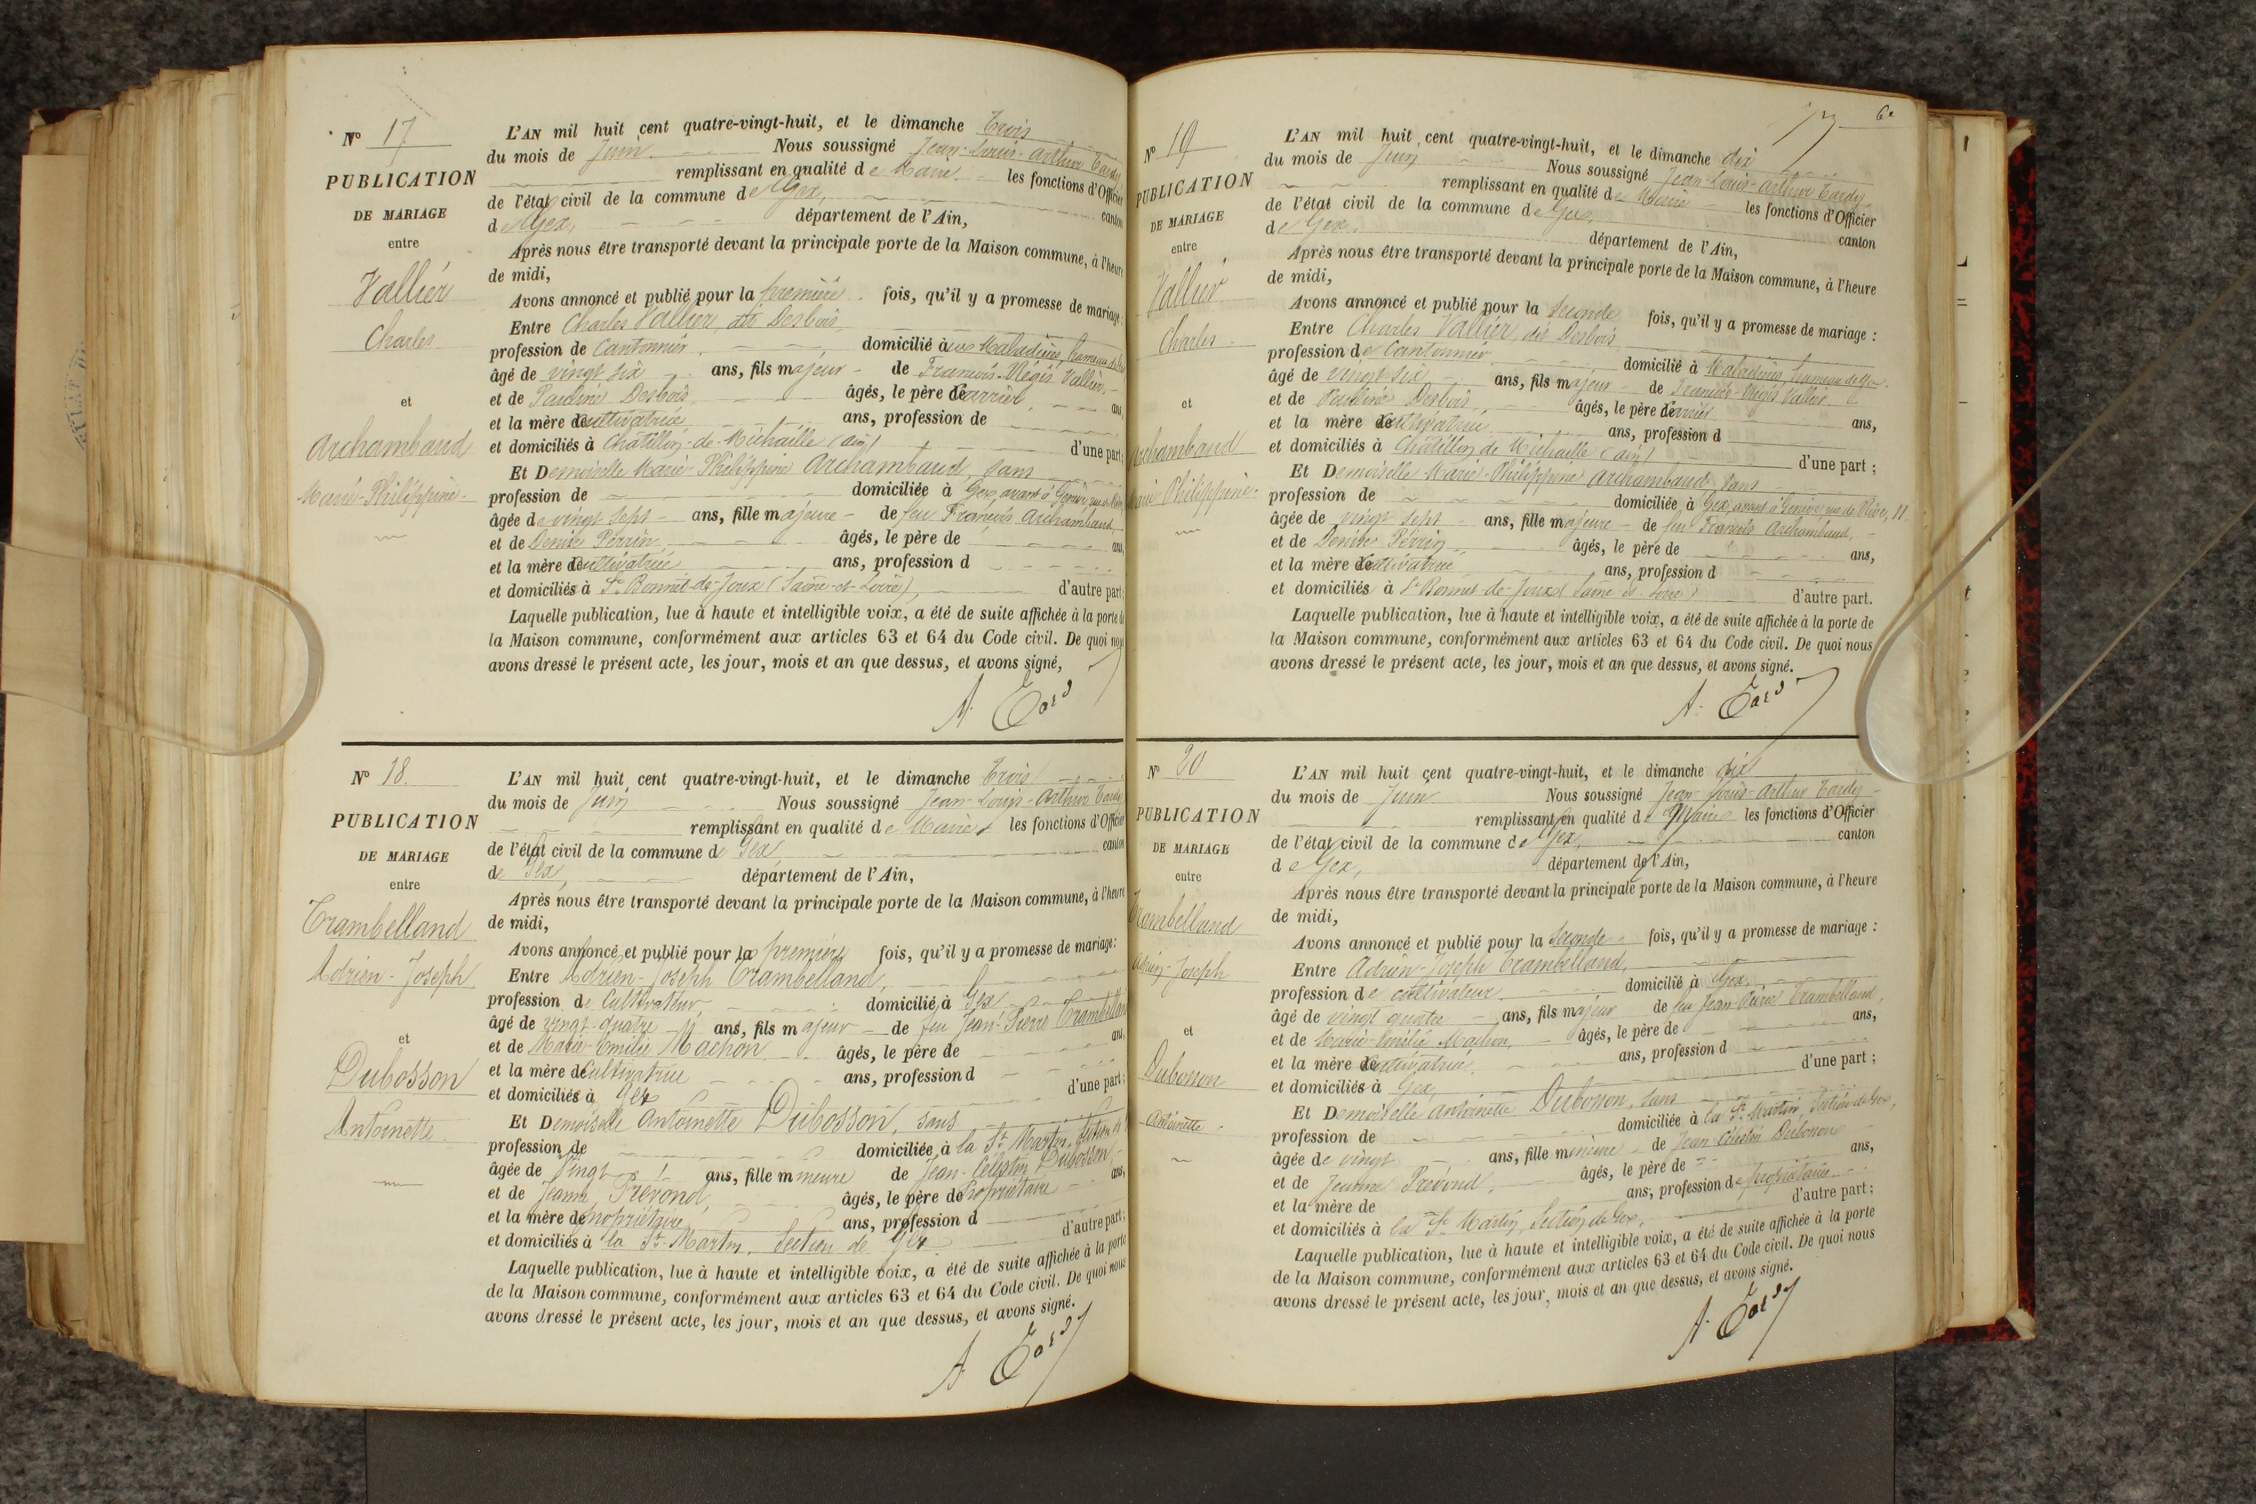 N° 17
PUBLICATION
DE MARIAGE
entre
Vallier
Charles
et
Archambaud
Marie-Philippine
L'AN mil huit cent quatre-vingt-huit, et le dimanche Trois
du mois de Juin Nous soussigné Jean-Louis-Arthur Tardy
remplissant en qualité de Maire les fonctions d'Officier
de l'état civil de la commune de Gex, canton
de Gex, département de l'Ain,
Après nous être transporté devant la principale porte de la Maison commune, à l'heure
de midi,
Avons annoncé et publié pour la première fois, qu'il y a promesse de mariage:
Entre Charles Vallier, dit Desbois
profession de Cantonnier domicilié à Maladière, hameau de
âgé de vingt six ans, fils majeur de François-Régis Vallier,
et de Pauline Desbois âgés, le père de ans,
et la mère de cultivatrice ans, profession de
et domiciliés à Châtillon-de-Michaille (Ain) d'une part;
Et Demoiselle Marie-Philippine Archambaud, sans
profession de domiciliée à Gex, avant à Genève,
âgée de vingt sept ans, fille majeure de feu François Archambaud,
et de Denise Perrin âgés, le père de ans,
et la mère de cultivatrice ans, profession d
et domiciliés à St Bonnet-de-Joux (Saône-et-Loire), d'autre part;
Laquelle publication, lue à haute et intelligible voix, a été de suite affichée à la porte de
la Maison commune, conformément aux articles 63 et 64 du Code civil. De quoi nous
avons dressé le présent acte, les jour, mois et an que dessus, et avons signé,
A. Tardy
N° 18.
PUBLICATION
DE MARIAGE
entre
Trambelland
Adrien-Joseph
et
Dubosson
Antoinette
L'AN mil huit cent quatre-vingt-huit, et le dimanche Trois
du mois de Juin Nous soussigné Jean-Louis-Arthur Tardy
remplissant en qualité de Maire les fonctions d'Officier
de l'état civil de la commune de Gex canton
de Gex, département de l'Ain,
Après nous être transporté devant la principale porte de la Maison commune, à l'heure
de midi,
Avons annoncé et publié pour la première fois, qu'il y a promesse de mariage:
Entre Adrien-Joseph Trambelland,
profession de Cultivateur, domicilié à Gex
âgé de vingt-quatre ans, fils majeur de feu Jean-Pierre Trambelland
et de Marie-Emilie Machon âgés, le père de ans,
et la mère de cultivatrice ans, profession d
et domiciliés à Gex d'une part;
Et Demoiselle Antoinette Dubosson, sans
profession de domiciliée à la St Martin, Section de
âgée de Vingt ans, fille mineure de Jean-Célestin Dubosson,
et de Jeanne Prévond, âgés, le père de Propriétaire ans,
et la mère de propriétaire ans, profession d
et domiciliés à la St Martin, Section de Gex d'autre part;
Laquelle publication, lue à haute et intelligible voix, a été de suite affichée à la porte
de la Maison commune, conformément aux articles 63 et 64 du Code civil. De quoi nous
avons dressé le présent acte, les jour, mois et an que dessus, et avons signé.
A. Tardy
N° 19
PUBLICATION
DE MARIAGE
entre
Vallier
Charles
et
Archambaud
Marie Philippine
L'AN mil huit cent quatre-vingt-huit, et le dimanche dix
du mois de Juin Nous soussigné Jean-Louis-Arthur Tardy
remplissant en qualité de Maire les fonctions d'Officier
de l'état civil de la commune de Gex, canton
de Gex. département de l'Ain,
Après nous être transporté devant la principale porte de la Maison commune, à l'heure
de midi,
Avons annoncé et publié pour la seconde fois, qu'il y a promesse de mariage :
Entre Charles Vallier, dit Desbois
profession de Cantonnier domicilié à Maladière, hameau de Gex.
âgé de vingt six ans, fils majeur de François-Régis Vallier
et de Pauline Desbois âgés, le père de ans,
et la mère de cultivatrice, ans, profession d
et domiciliés à Châtillon de Michaille (Ain) d'une part ;
Et Demoiselle Marie-Philippine Archambaud, sans
profession de domiciliée à Gex, avant à Genève, rue de Rive, 11
âgée de vingt sept ans, fille majeure de feu François Archambaud,
et de Denise Perrin, âgés, le père de ans,
et la mère de cultivatrice ans, profession d
et domiciliés à St Bonnet-de-Joux (Saône et Loire) d'autre part.
Laquelle publication, lue à haute et intelligible voix, a été de suite affichée à la porte de
la Maison commune, conformément aux articles 63 et 64 du Code civil. De quoi nous
avons dressé le présent acte, les jour, mois et an que dessus, et avons signé.
A. Tardy
N° 20
PUBLICATION
DE MARIAGE
entre
Trambelland
Adrien-Joseph
et
Dubosson
Antoinette
L'AN mil huit cent quatre-vingt-huit, et le dimanche dix
du mois de Juin Nous soussigné Jean-Louis-Arthur Tardy
remplissant en qualité de Maire les fonctions d'Officier
de l'état civil de la commune de Gex, canton
de Gex, département de l'Ain,
Après nous être transporté devant la principale porte de la Maison commune, à l'heure
de midi,
Avons annoncé et publié pour la Seconde fois, qu'il y a promesse de mariage :
Entre Adrien-Joseph Trambelland,
profession de cultivateur domicilié à Gex,
âgé de vingt quatre ans, fils majeur de feu Jean Pierre Trambelland,
et de Marie-Emilie Machon, âgés, le père de ans,
et la mère de cultivatrice, ans, profession d
et domiciliés à Gex, d'une part ;
Et Demoiselle Antoinette Dubosson, sans
profession de domiciliée à la St Martin, Section de Gex,
âgée de vingt ans, fille mineure de Jean-Célestin Dubosson
et de Jeanne Prévond, âgés, le père de ans,
et la mère de ans, profession de propriétaires
et domiciliés à la St Martin, Section de Gex, d'autre part ;
Laquelle publication, lue à haute et intelligible voix, a été de suite affichée à la porte
de la Maison commune, conformément aux articles 63 et 64 du Code civil. De quoi nous
avons dressé le présent acte, les jour, mois et an que dessus, et avons signé.
A. Tardy